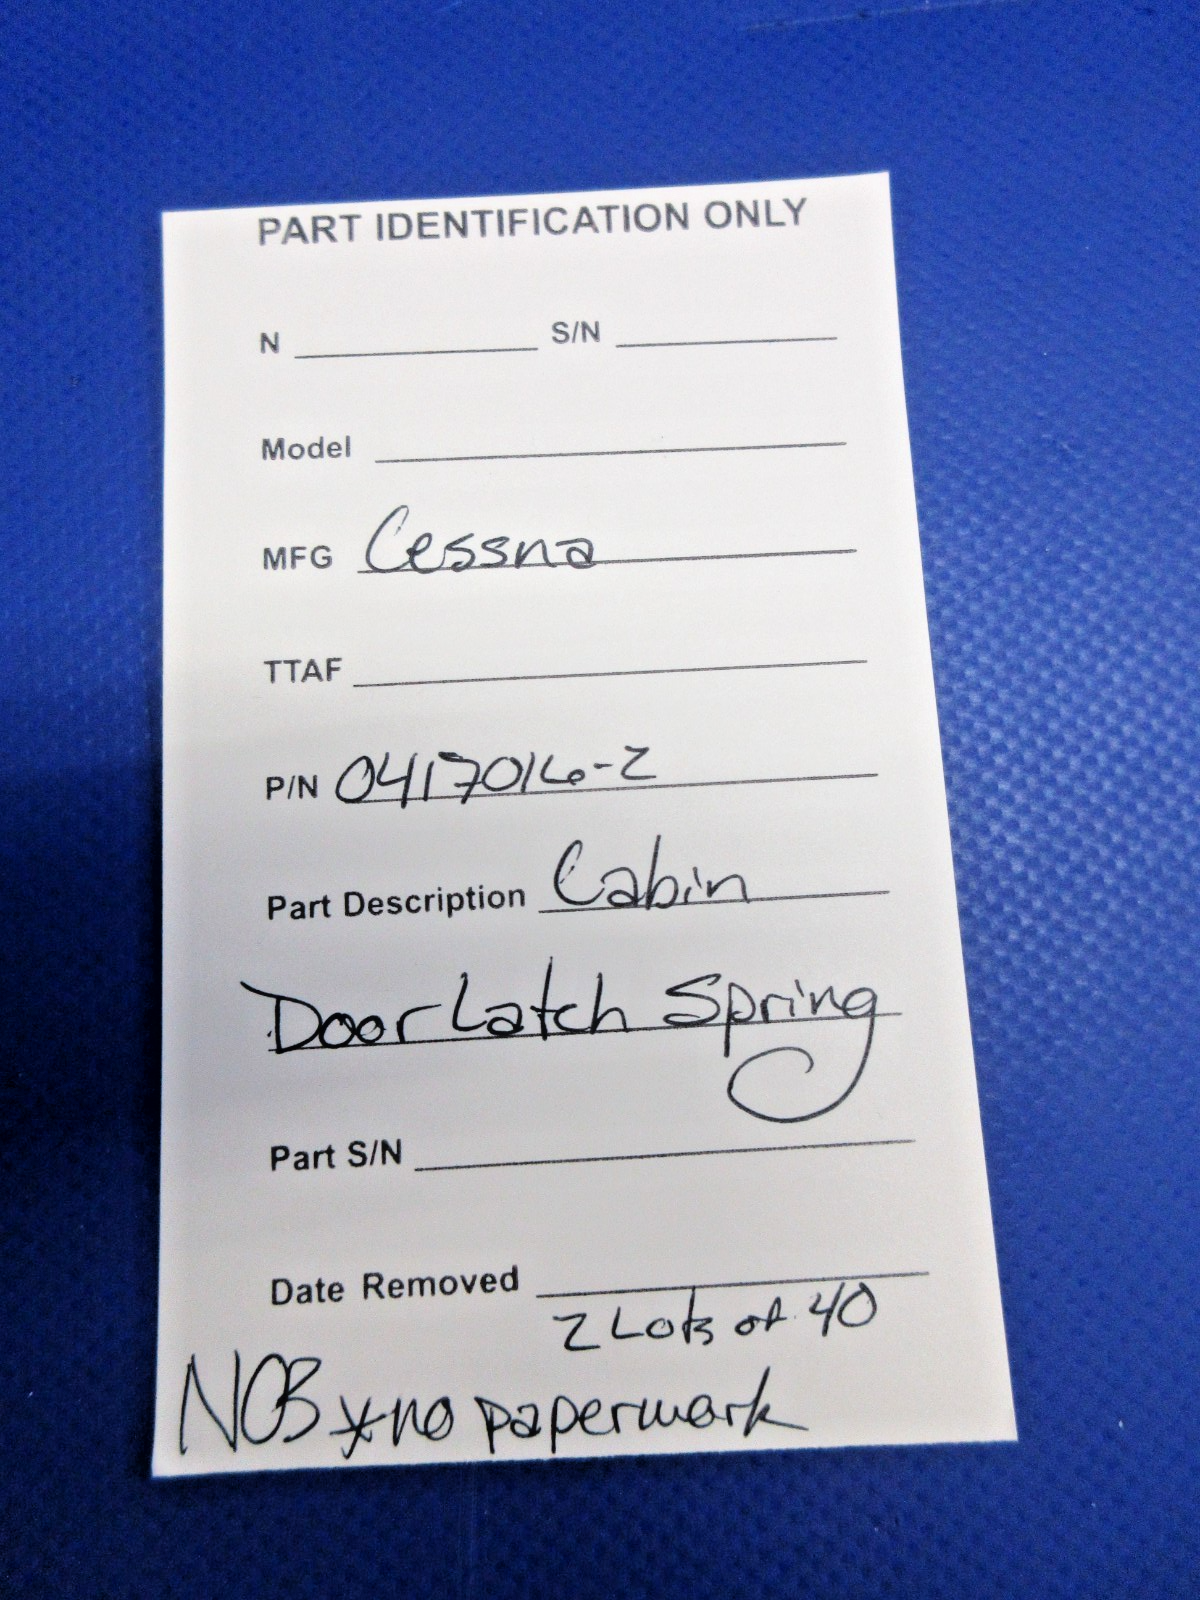 PART IDENTIFICATION ONLY
N S/N
Model
MFG Cessna
TTAF
P/N 0417016-2
Part Description Cabin
Door Latch Spring
Part S/N
Date Removed
2 Lots of 40
NOB *no paperwork